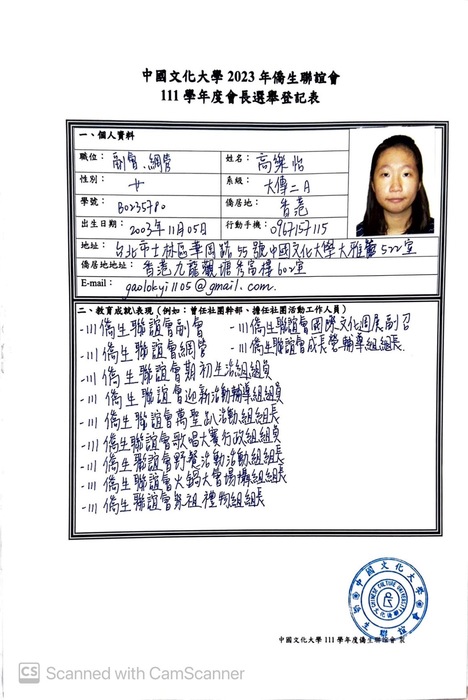 中國文化大學 2023 年僑生聯誼會
111 學年度會長選舉登記表
一、個人資料
職位： 副會、網管 姓名： 高樂怡
性別： 女 系級： 大傳二A
學號： B0235780 僑居地： 香港
出生日期： 2003年11月05日 行動手機： 0967157115
地址： 台北市士林區華岡路55號中國文化大學大雅館522室
僑居地地址： 香港九龍觀塘秀富樓602室
E-mail： gaolokyi1105@gmail.com.
二、教育成就\表現（例如：曾任社團幹部、擔任社團活動工作人員）
-111 僑生聯誼會副會 -111僑生聯誼會國際文化週展副召
-111 僑生聯誼會網管 -111僑生聯誼會成長營輔導組組長.
-111 僑生聯誼會期初生活組組員
-111 僑生聯誼會迎新活動輔導組組員
-111 僑生聯誼會萬聖趴活動組組長
-111 僑生聯誼會歌唱大賽行政組組員
-111 僑生聯誼會野餐活動活動組組長
-111 僑生聯誼會火鍋大會場構組組長
-111 僑生聯誼會祭祖禮物組組長
中國文化大學
CHINESE CULTURE UNIVERSITY
僑生聯誼會
中國文化大學 111 學年度僑生聯誼會 製
CS Scanned with CamScanner